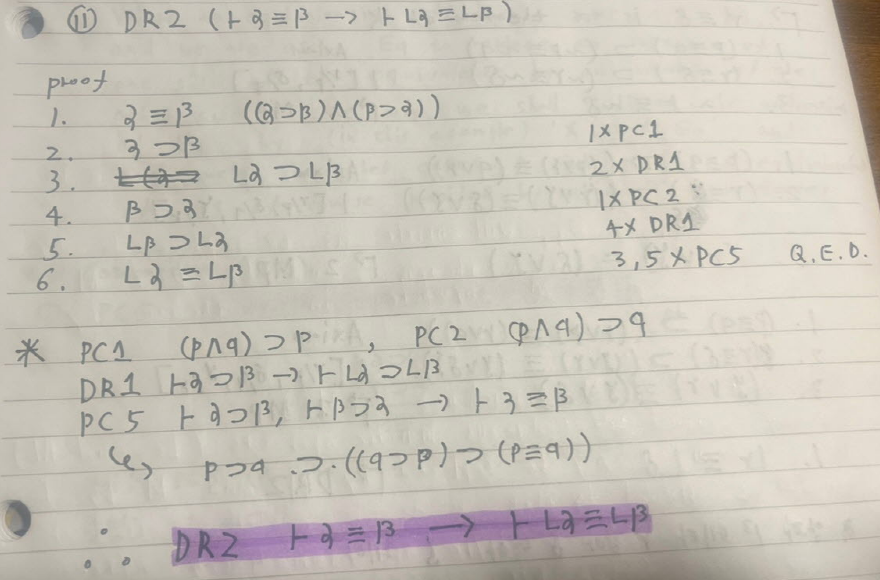 ⑪ DR2 (⊢α≡β → ⊢Lα≡Lβ)
proof
1. α≡β ((α⊃β)∧(β⊃α))
2. α⊃β 1×PC1
3. Lα⊃Lβ 2×DR1
4. β⊃α 1×PC2
5. Lβ⊃Lα 4×DR1
6. Lα≡Lβ 3,5×PC5 Q.E.D.
* PC1 (p∧q)⊃p, PC2 (p∧q)⊃q
DR1 ⊢α⊃β → ⊢Lα⊃Lβ
PC5 ⊢α⊃β, ⊢β⊃α → ⊢α≡β
↳ p⊃q .⊃. ((q⊃p)⊃(p≡q))
∴ DR2 ⊢α≡β → ⊢Lα≡Lβ